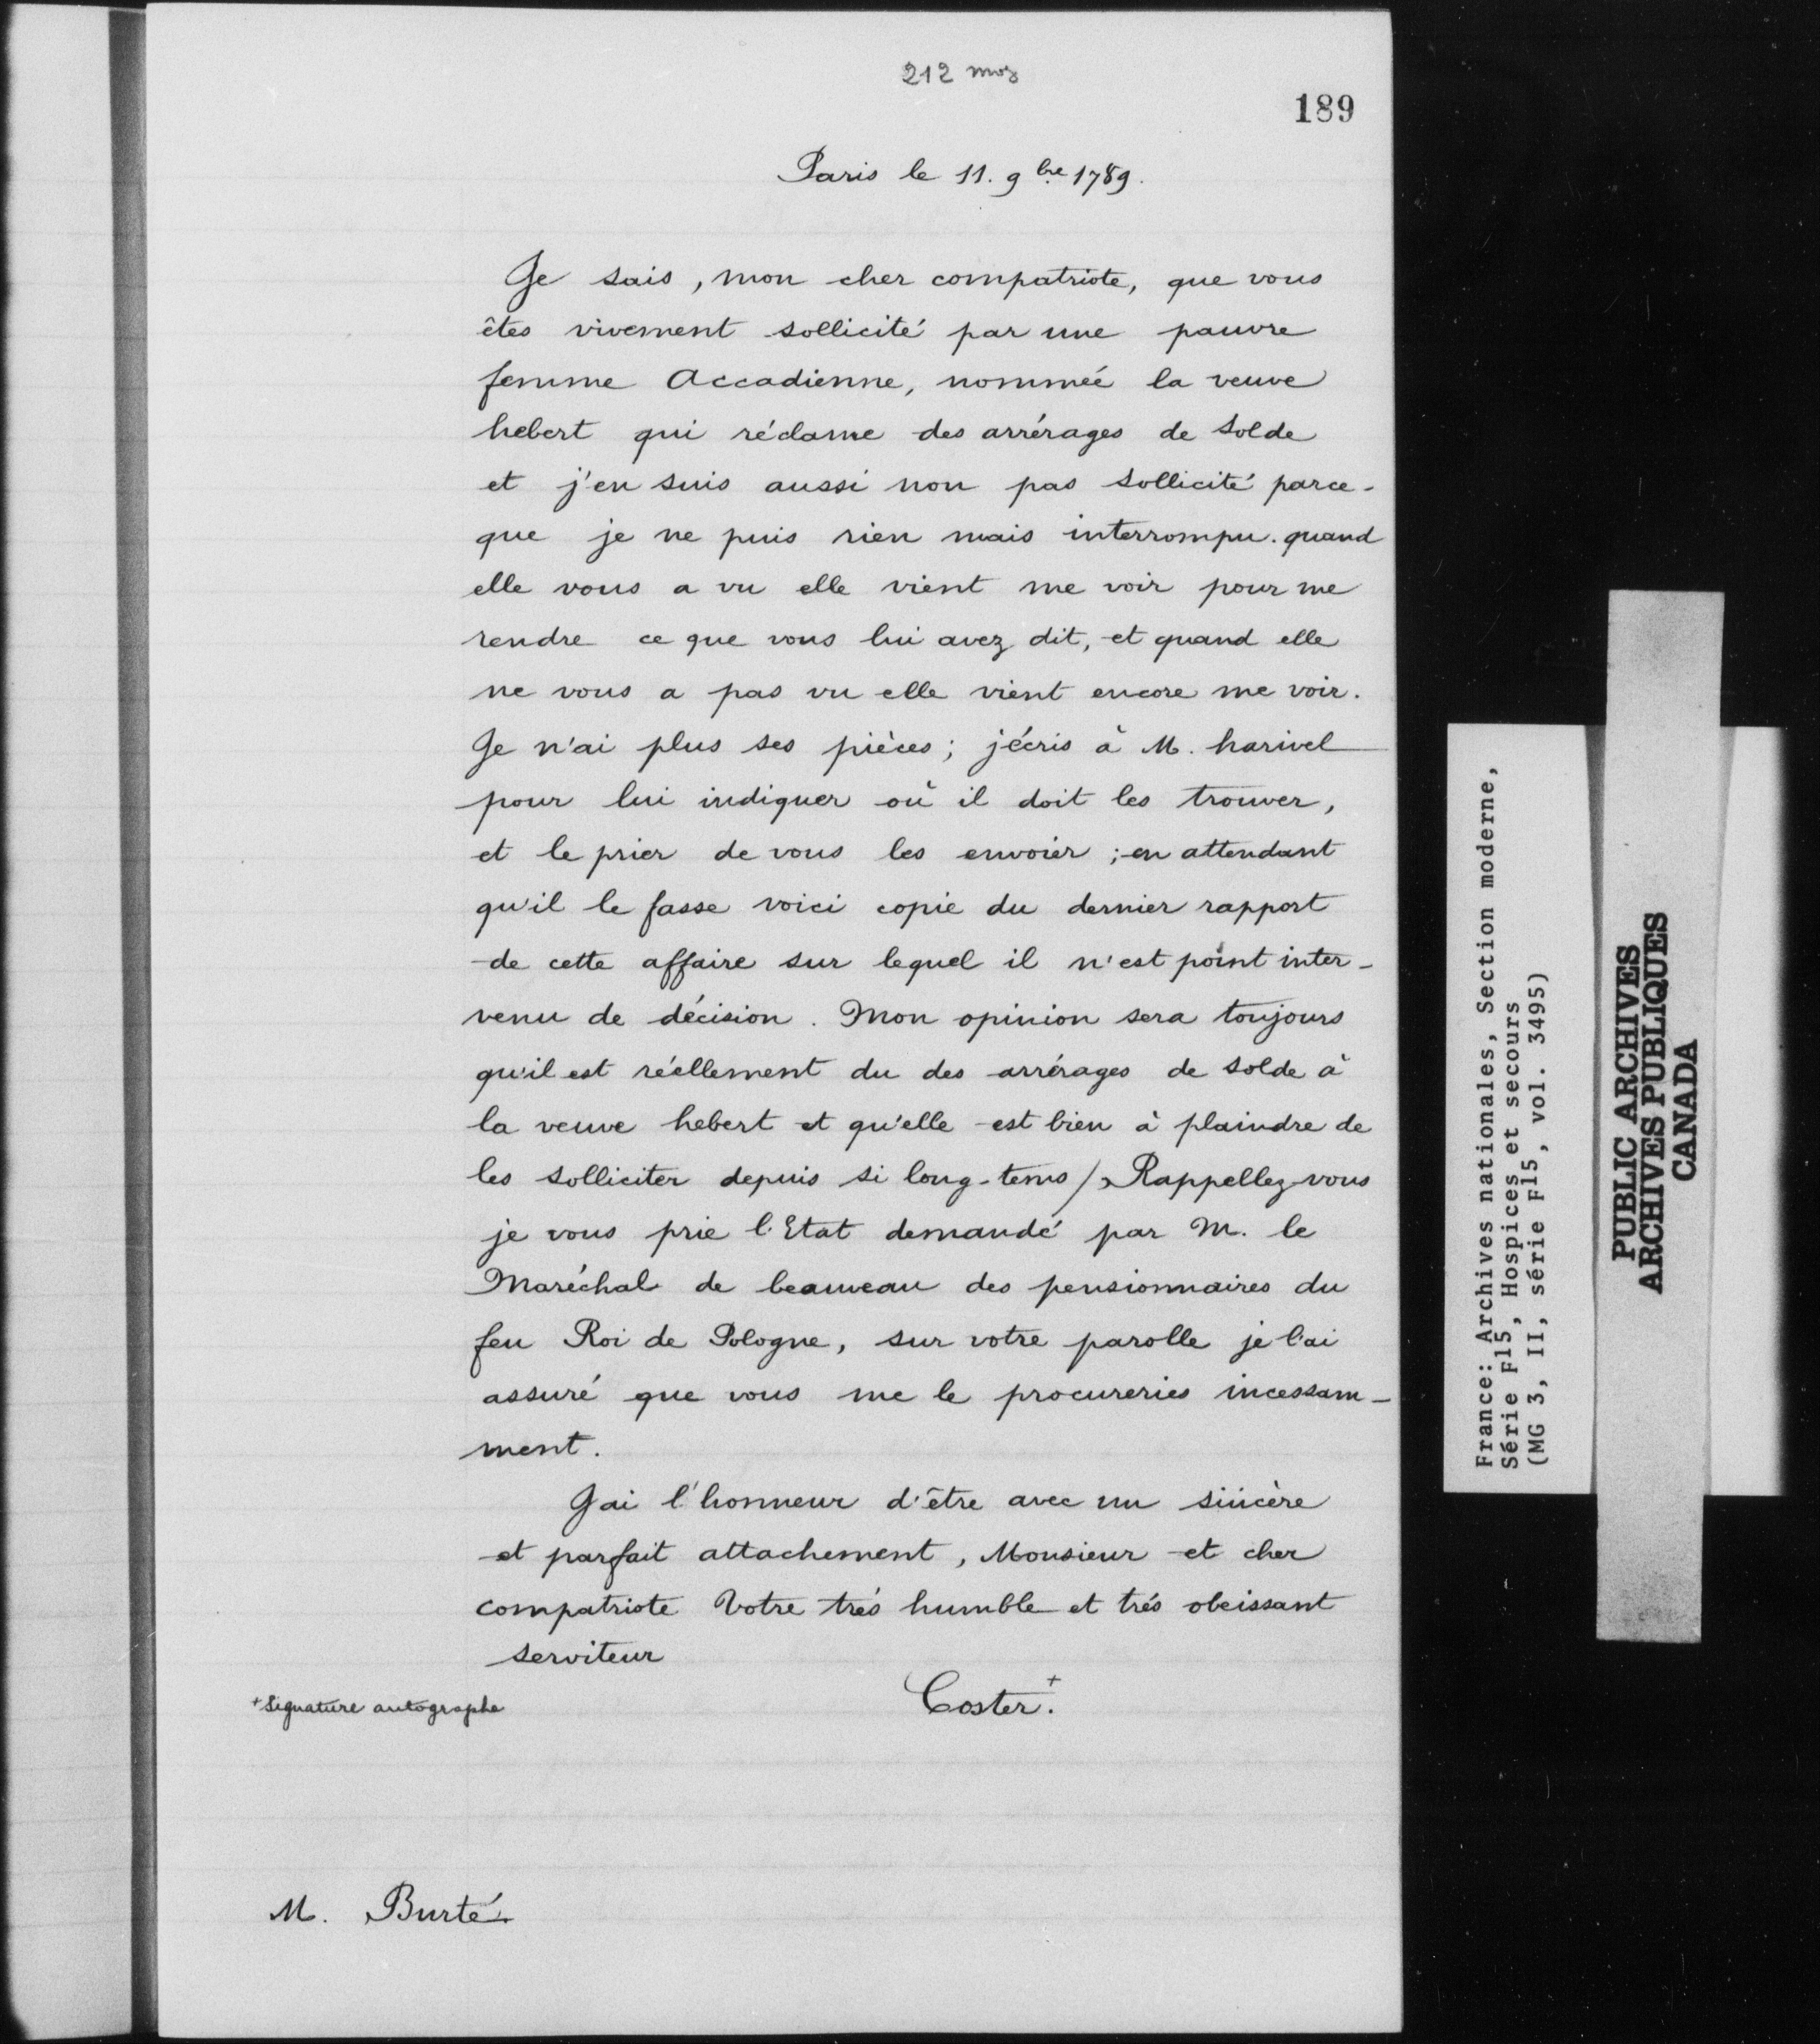 212 mots
189
Paris le 11. 9 bre 1789.
Je sais, mon cher compatriote, que vous
êtes vivement sollicité par une pauvre
femme Accadienne, nommée la veuve
hebert qui réclame des arrérages de solde
et j'en suis aussi non pas sollicité parce-
que je ne puis rien mais interrompu. quand
elle vous a vu elle vient me voir pour me
rendre ce que vous lui avez dit, et quand elle
ne vous a pas vu elle vient encore me voir.
Je n'ai plus ses pièces; j'écris à M. harivel
pour lui indiquer où il doit les trouver,
et le prier de vous les envoier; en attendant
qu'il le fasse voici copie du dernier rapport
de cette affaire sur lequel il n'est point inter-
venu de décision. Mon opinion sera toujours
qu'il est réellement du des arrérages de solde à
la veuve hebert et qu'elle est bien à plaindre de
les solliciter depuis si long-tems / Rappellez-vous
je vous prie l'Etat demandé par M. le
Maréchal de beauveau des pensionnaires du
feu Roi de Pologne, sur votre parolle je l'ai
assuré que vous me le procureries incessam-
ment.
J'ai l'honneur d'être avec un sincère
et parfait attachement, Monsieur et cher
compatriote Votre trés humble et trés obeissant
serviteur
Coster.+
+Signature autographe
M. Burté
France: Archives nationales, Section moderne,
Série F15, Hospices et secours
(MG 3, II, série F15, vol. 3495)
PUBLIC ARCHIVES
ARCHIVES PUBLIQUES
CANADA